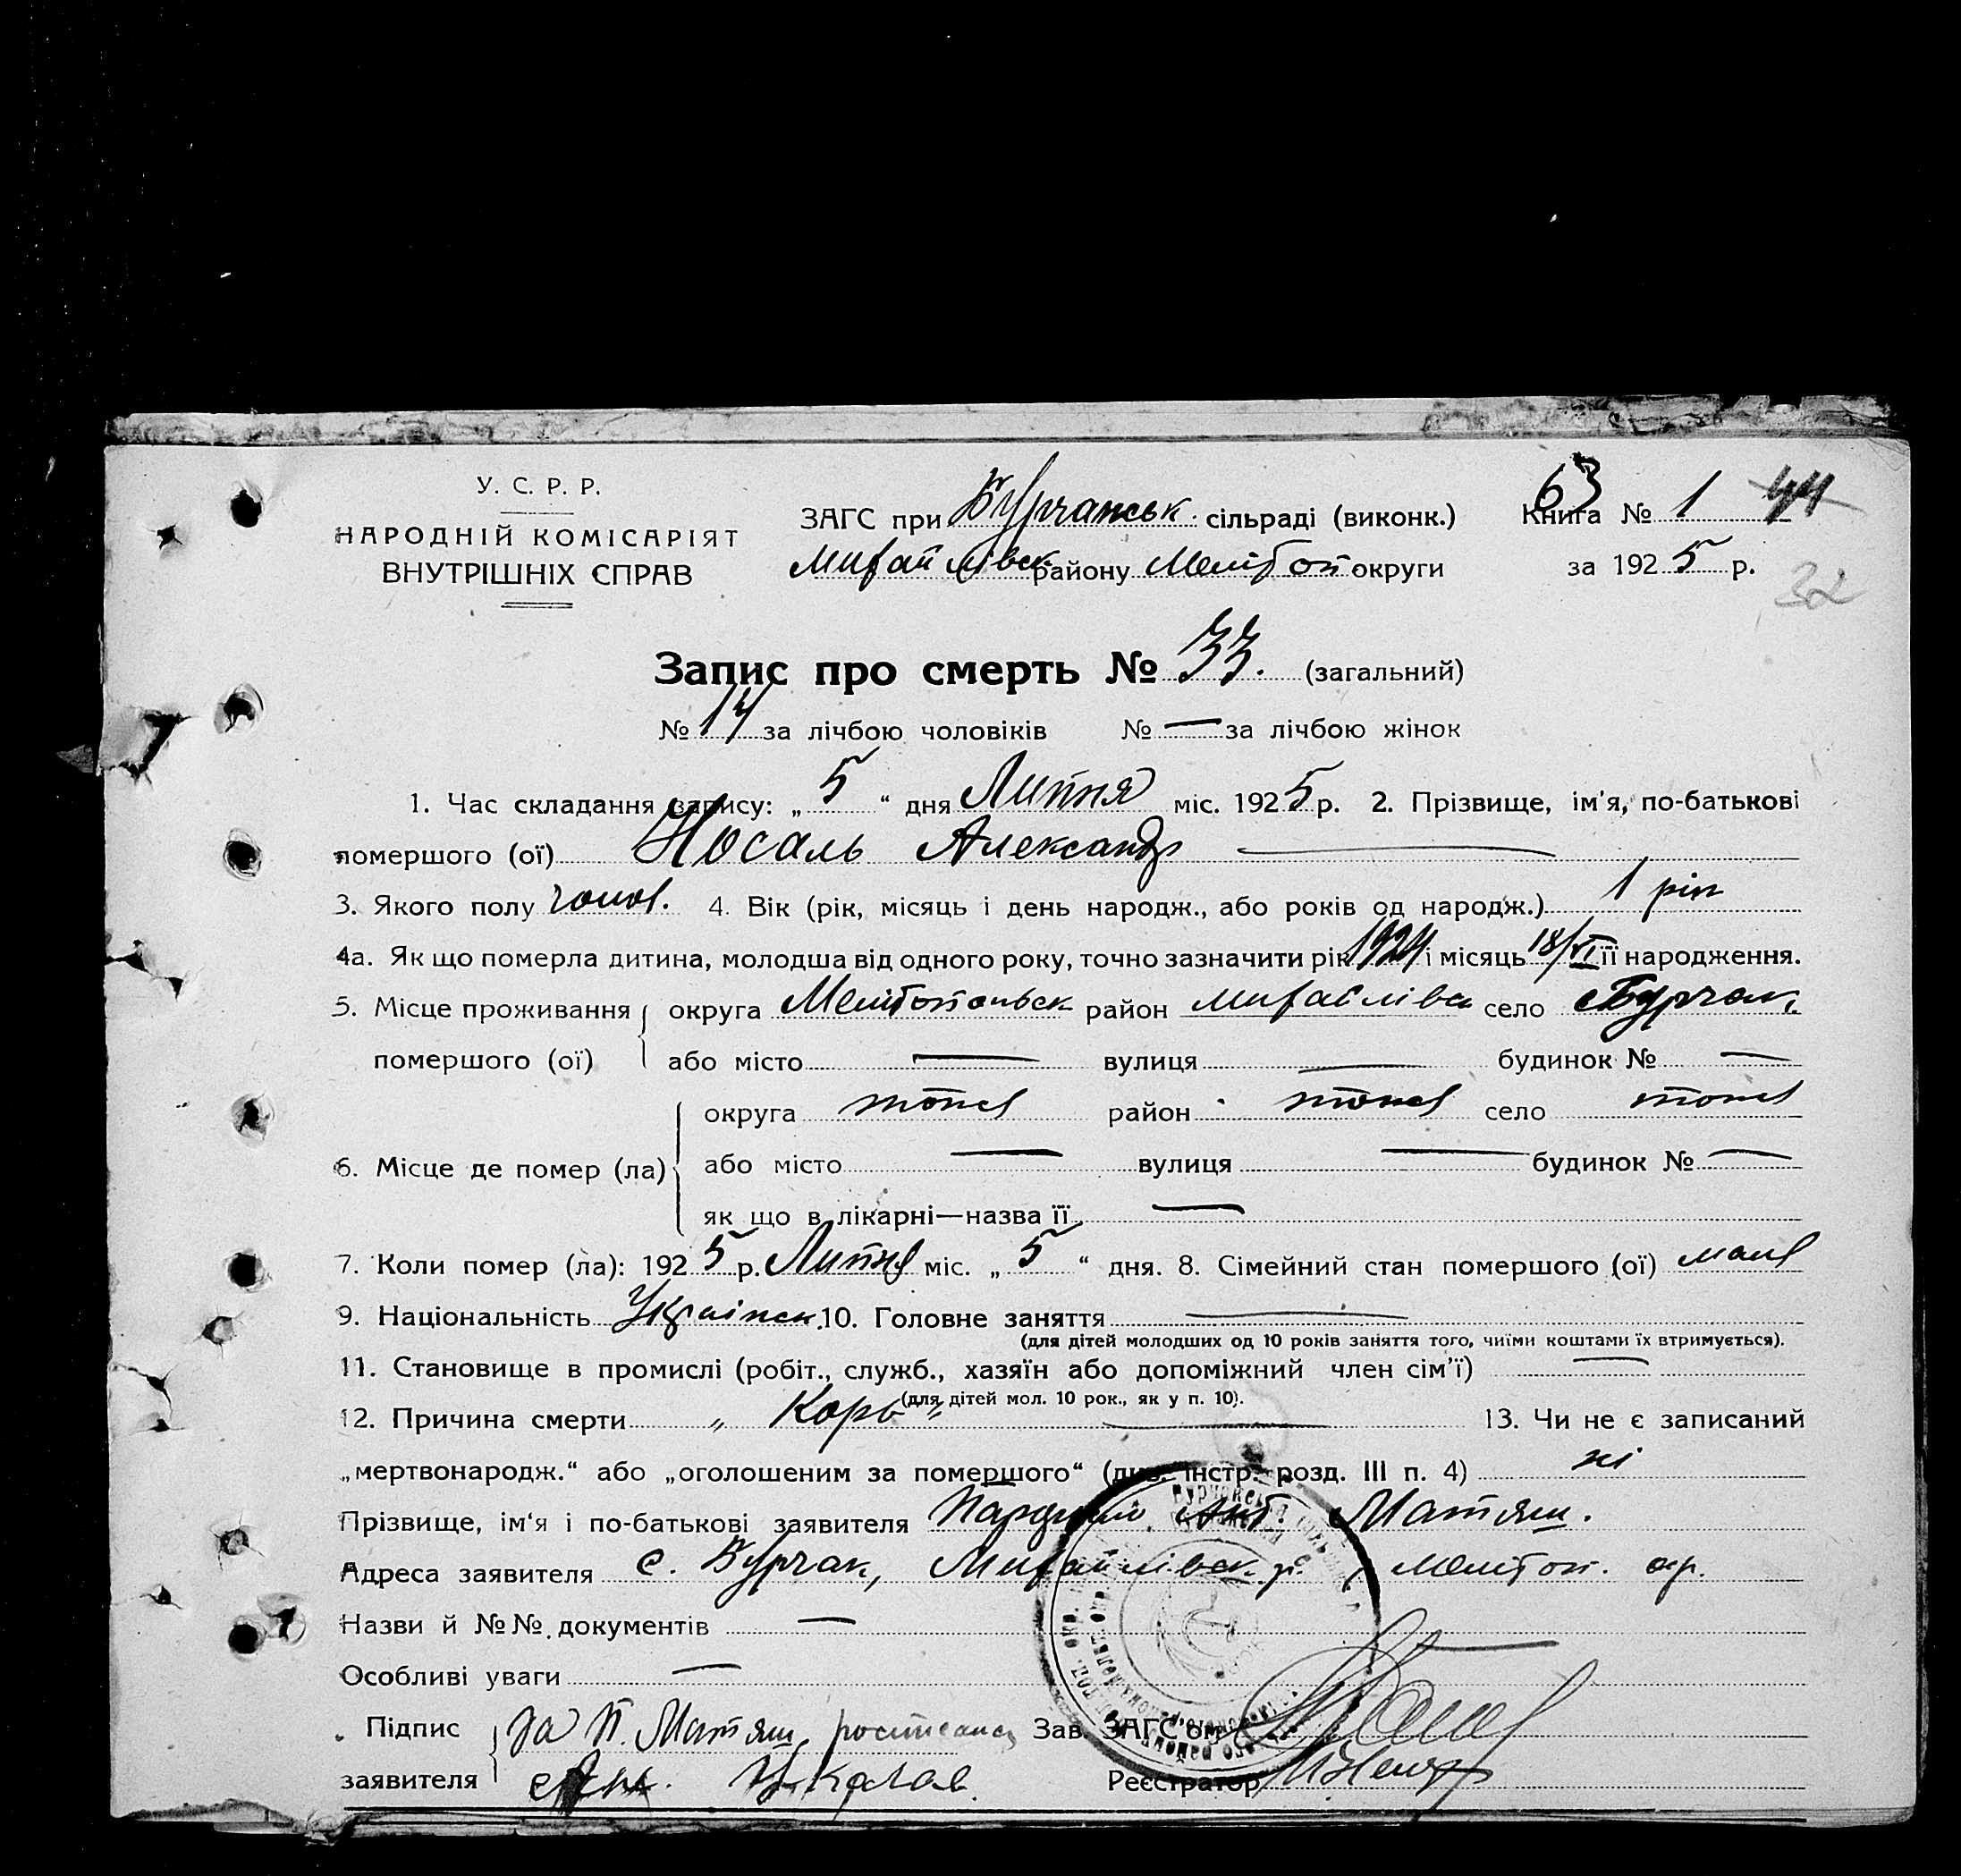 У. С. Р. Р.
НАРОДНІЙ КОМІСАРІЯТ
ВНУТРІШНІХ СПРАВ
ЗАГС при Бурчанськ. сільраді (виконк.)
Михайлівськ району Мелітоп округи
63
Книга № 1 44
за 1925 р.
32
Запис про смерть № 33. (загальний)
№ 14 за лічбою чоловіків № — за лічбою жінок
1. Час складання запису: „ 5 “ дня Липня міс. 1925 р. 2. Прізвище, ім'я, по-батькові
помершого (ої) Носаль Александр —
3. Якого полу чолов. 4. Вік (рік, місяць і день народж., або років од народж.) 1 рік
4а. Як що померла дитина, молодша від одного року, точно зазначити рік 1924 і місяць 18/VI її народження.
5. Місце проживання помершого (ої) округа Мелітопольськ район Михайлівськ село Бурчак.
або місто — вулиця — будинок № —
6. Місце де помер (ла) округа район село
або місто — вулиця — будинок № —
як що в лікарні—назва її —
7. Коли помер (ла): 1925 р. Липня міс. „ 5 “ дня. 8. Сімейний стан помершого (ої)
9. Національність Українськ. 10. Головне заняття —
(для дітей молодших од 10 років заняття того, чиїми коштами їх втримується).
11. Становище в промислі (робіт., служб., хазяїн або допоміжний член сім'ї) —
(для дітей мол. 10 рок., як у п. 10).
12. Причина смерти „ Корь “ — 13. Чи не є записаний
„мертвонародж.“ або „оголошеним за помершого“ (див. інстр. розд. III п. 4) ні
Прізвище, ім'я і по-батькові заявителя Матяш.
Адреса заявителя с. Бурчак, Михайлівск. р. Мелітоп. окр.
Назви й №№ документів —
Особливі уваги —
Підпис заявителя За П. Матяш
Зав. ЗАГС'ом
Реєстратор